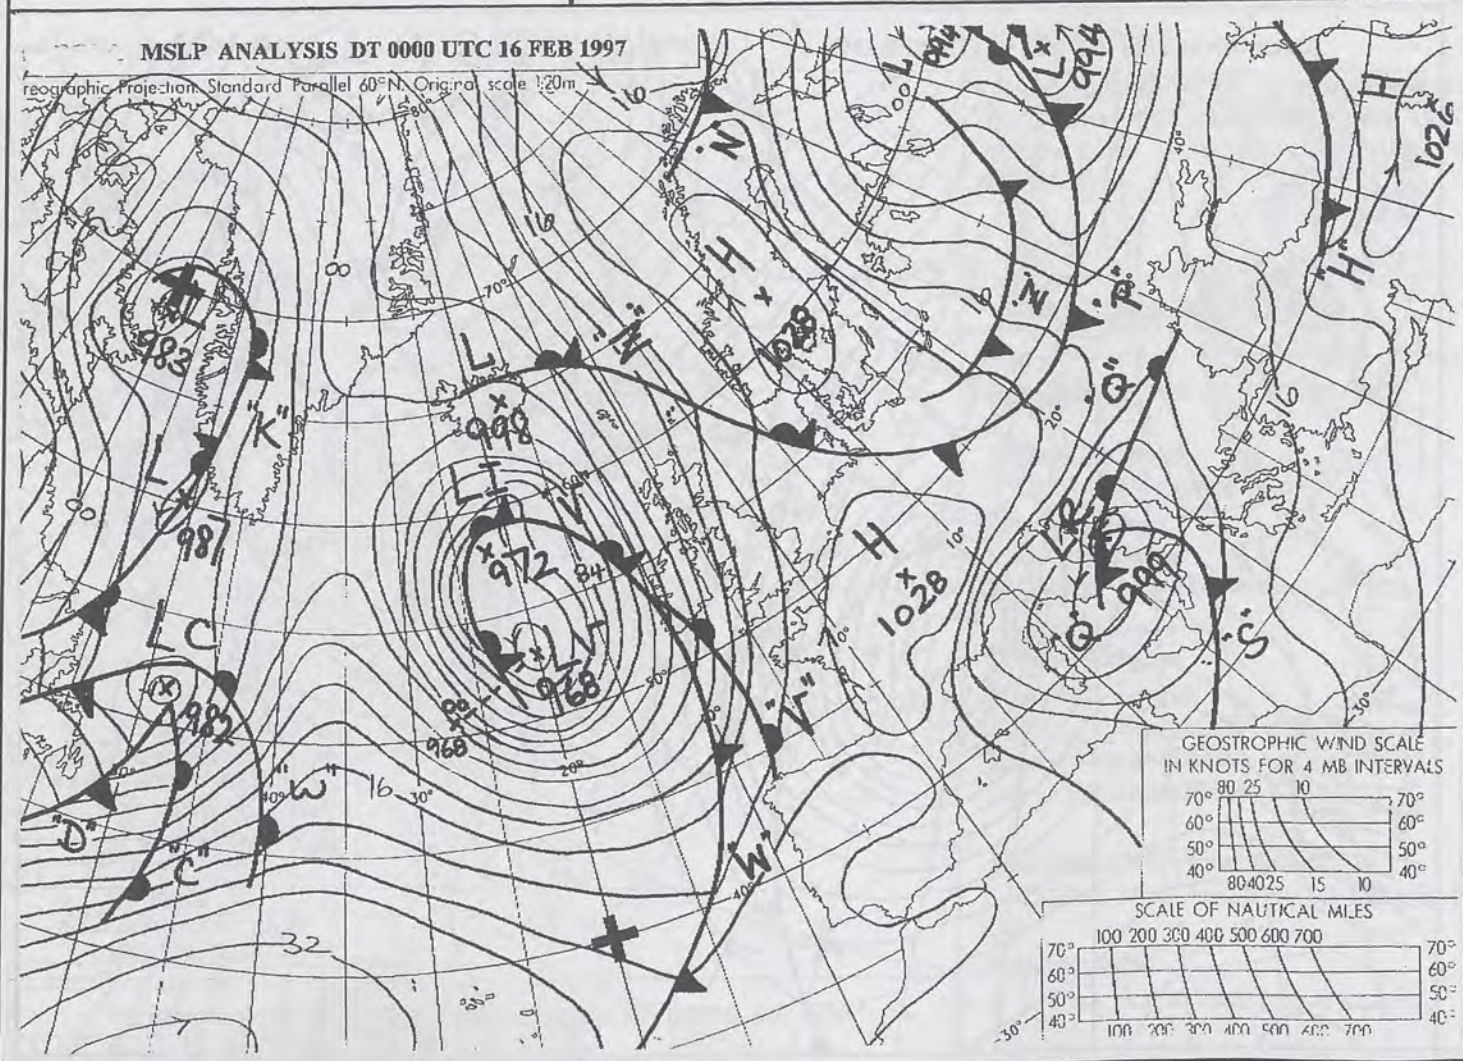 MSLP ANALYSIS DT 0000 UTC 16 FEB 1997
reographic Projection. Standard Parallel 60°N. Original scale 1:20m
80°
16
"N"
L
994
L
994
00
40°
H
1026
"H"
16
H
1028
"N"
"M"
"P"
10
"Q"
20°
16
L
983
00
70°
L
998
"K"
L
987
00
L I
972
"V"
60°
84
L
968
00
968
H
1028
10°
0°
L R
999
"Q"
"S"
L C
982
50°
10°
"V"
"D"
"C"
40°
"W"
16
30°
20°
"W"
40°
32
30°
30°
GEOSTROPHIC WIND SCALE
IN KNOTS FOR 4 MB INTERVALS
80 25 10
70° 70°
60° 60°
50° 50°
40° 40°
80 40 25 15 10
SCALE OF NAUTICAL MILES
100 200 300 400 500 600 700
70° 70°
60° 60°
50° 50°
40° 40°
100 200 300 400 500 600 700